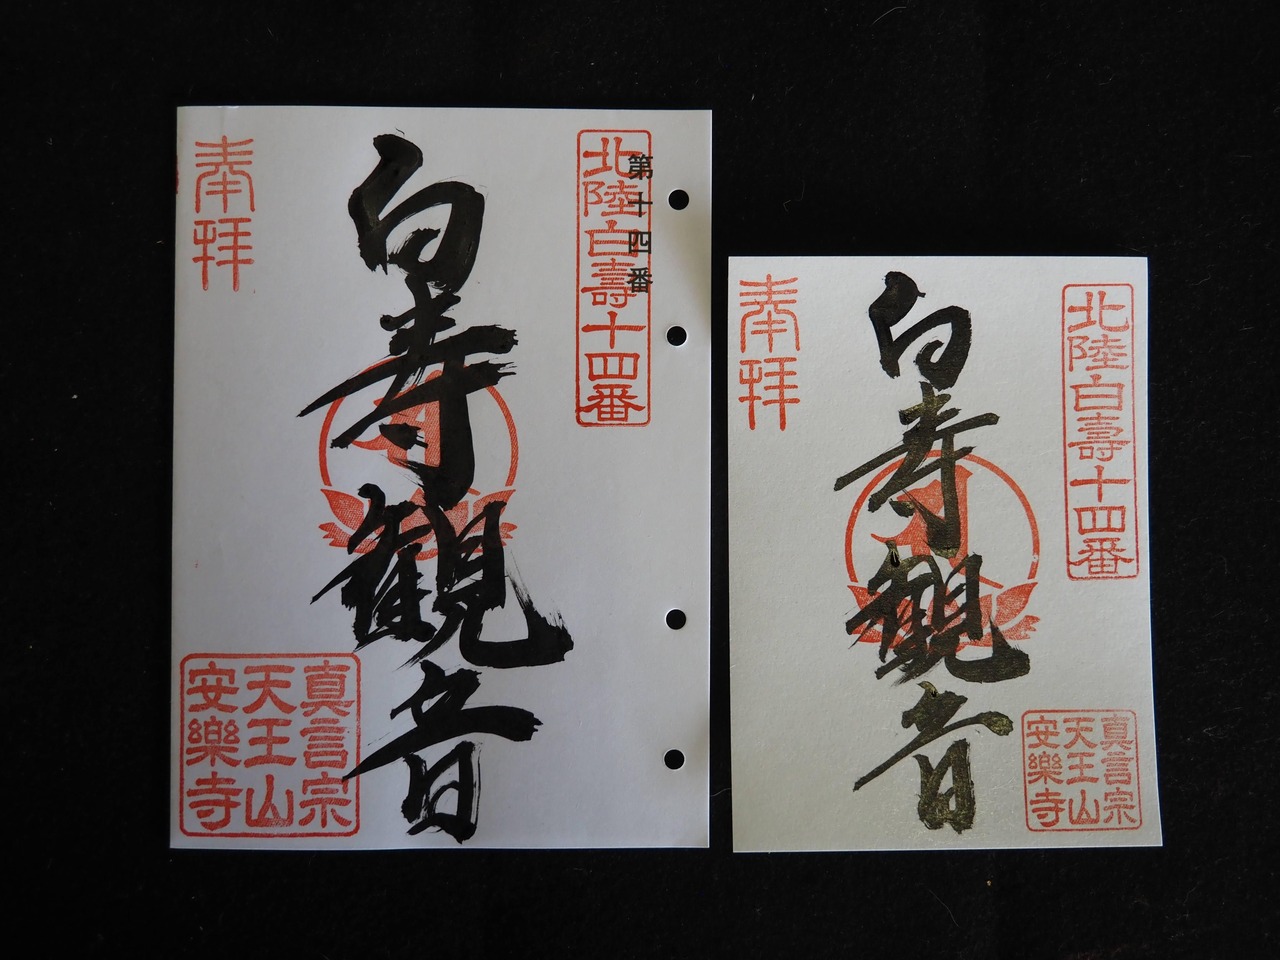 第十四番
北陸白壽十四番
白寿観音
奉拝
真言宗
天王山
安樂寺
北陸白壽十四番
白寿観音
奉拝
真言宗
天王山
安樂寺